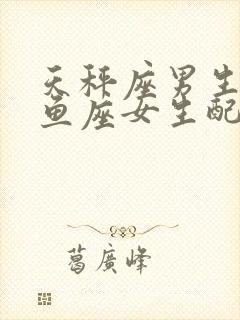 天秤座男生
鱼座女生配
葛廣峰